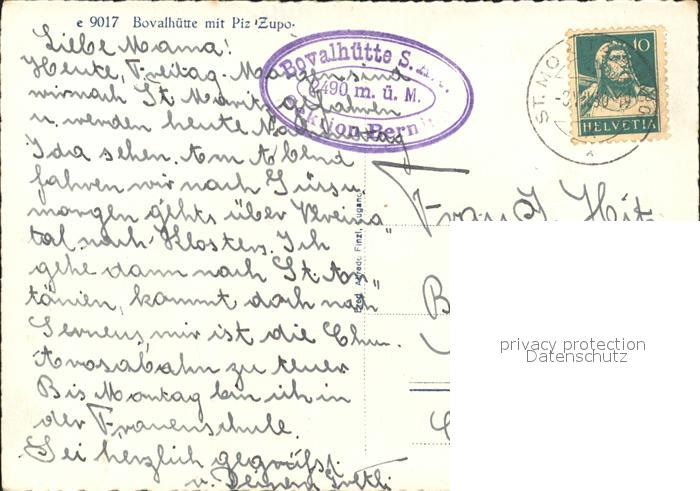 e 9017 Bovalhütte mit Piz Zupo
Liebe Mama!
Heute, Freitag-Morgen sind
wir nach St. Moritz gefahren
u. werden heute Nachmittag
Ida sehen. Am Abend
fahren wir nach Süs u.
morgen gehts über Vereina"
tal nach Klosters. Ich
gehe dann nach St. An"
tönien, kommt doch nach
Serneus, mir ist die Chur-
Arosabahn zu teuer
Bis Montag bin ich in
der Frauenschule.
Sei herzlich gegrüsst
v. Deinem
Bovalhütte S.A.C.
2490 m. ü. M.
Sektion Bernina
ST. MO
10
HELVETIA
Fred. Alfredo Finzi, Lugano
Frau J. Hit
B
privacy protection
Datenschutz